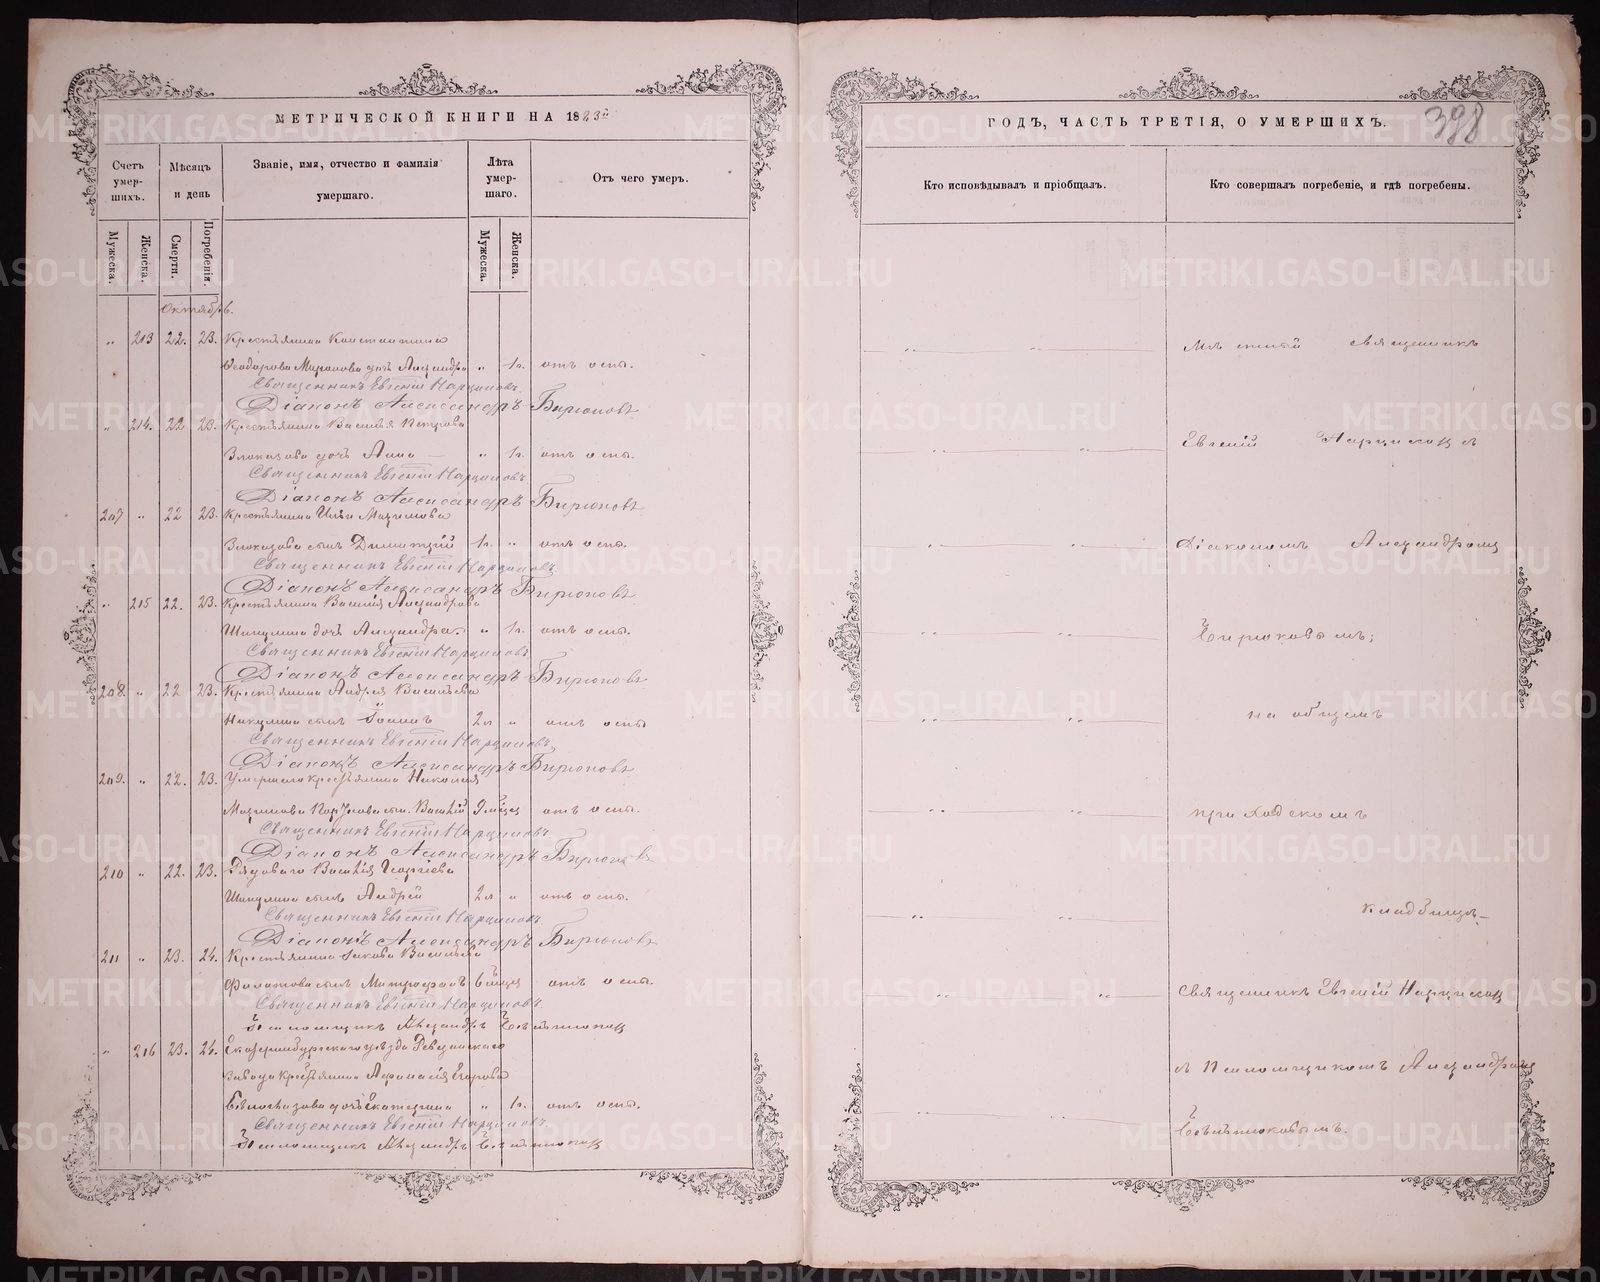 МЕТРИЧЕСКОЙ КНИГИ НА 1883й
Счетъ умер-шихъ.
Мѣсяцъ и день
Званіе, имя, отчество и фамилія умершаго.
Лѣта умер-шаго.
Отъ чего умеръ.
Мужеска.
Женска.
Смерти.
Погребенія.
Мужеска.
Женска.
Октябрь.
" 213 22. 23. Крестьянина Константина
Ѳеодорова Миронова дочь Александра " 1г. отъ оспы.
Священникъ Евгеній Нарциссовъ
Діаконъ Александръ Бирюковъ
" 214. 22 23. Крестьянина Василья Петрова
Злоказова дочь Анна " 1г. отъ оспы.
Священникъ Евгеній Нарциссовъ
Діаконъ Александръ Бирюковъ
207 " 22 23. Крестьянина Ильи Максимова
Злоказова сынъ Димитрій 1г. " отъ оспы.
Священникъ Евгеній Нарциссовъ
Діаконъ Александръ Бирюковъ
" 215 22. 23. Крестьянина Василія Александрова
дочь Александра. " 1г. отъ оспы.
Священникъ Евгеній Нарциссовъ
Діаконъ Александръ Бирюковъ
208. " 22 23. Крестьянина Андрея Васильева
Никулина сынъ Іоаннъ 2л " отъ оспы
Священникъ Евгеній Нарциссовъ
Діаконъ Александръ Бирюковъ
209. " 22. 23. Умершаго крестьянина Николая
Максимова сынъ Василій 9 мѣсец отъ оспы.
Священникъ Евгеній Нарциссовъ
Діаконъ Александръ Бирюковъ
210 " 22. 23. Рядоваго Василія Георгіева
сынъ Андрей 2л " отъ оспы.
Священникъ Евгеній Нарциссовъ
Діаконъ Александръ Бирюковъ
211 " 23. 24. Крестьянина Іакова Васильева
Филатова сынъ Митрофанъ 6 мѣсец отъ оспы.
Священникъ Евгеній Нарциссовъ.
Псаломщикъ Александръ
" 216 23. 24. Екатеринбургскаго уѣзда Ревдинскаго
завода крестьянина Аѳанасія Егорова
дочь Екатерина " 1г. отъ оспы.
Священникъ Евгеній Нарциссовъ
Псаломщикъ Александръ
ГОДЪ, ЧАСТЬ ТРЕТІЯ, О УМЕРШИХЪ.
398
Кто исповѣдывалъ и пріобщалъ.
Кто совершалъ погребеніе, и гдѣ погребены.
Мѣстный священникъ
Евгеній Нарциссовъ съ
Діакономъ Александромъ
Бирюковымъ;
на общемъ
приходскомъ
кладбищѣ
Священникъ Евгеній Нарциссовъ
съ Псаломщикомъ Александромъ
METRIKI.GASO-URAL.RU